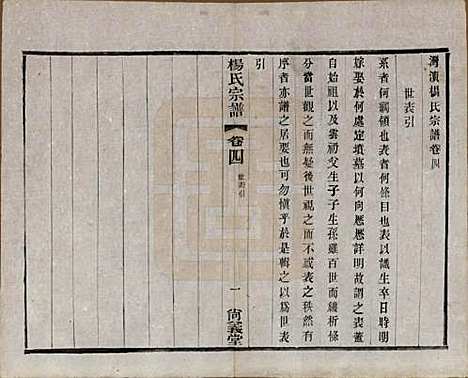 灣演楊氏宗譜卷四
世表引
系者何綱領也表者何條目也表以識生卒日時明
嫁娶於何處定墳墓以何向應歷詳明故謂之表蓋
自始祖以及雲礽父生子子生孫雖百世而縷析條
分當世觀之而無疑後世視之而不惑表之秩然有
序者亦譜之居要也可勿慎乎於是輯之以為世表
引
楊氏宗譜
卷四
一
尚義堂